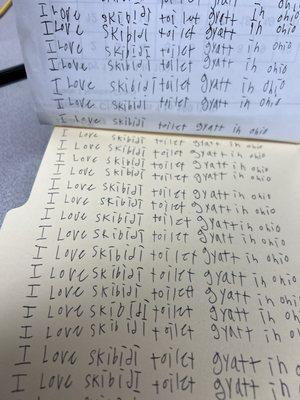 I Love skibidi toilet gyatt in ohio
I Love skibidi toilet gyatt in ohio
I Love skibidi toilet gyatt in ohio
I Love skibidi toilet gyatt in ohio
I Love skibidi toilet gyatt in ohio
I Love skibidi toilet gyatt in ohio
I Love skibidi toilet gyatt in ohio
I Love skibidi toilet gyatt in ohio
I Love skibidi toilet gyatt in ohio
I Love skibidi toilet gyatt in ohio
I Love skibidi toilet gyatt in ohio
I Love skibidi toilet gyatt in ohio
I Love skibidi toilet gyatt in ohio
I Love skibidi toilet gyatt in ohio
I Love skibidi toilet gyatt in ohio
I Love skibidi toilet gyatt in ohio
I Love skibidi toilet gyatt in ohio
I Love skibidi toilet gyatt in ohio
I Love skibidi toilet gyatt in ohio
I Love skibidi toilet gyatt in
I Love skibidi toilet gyatt in